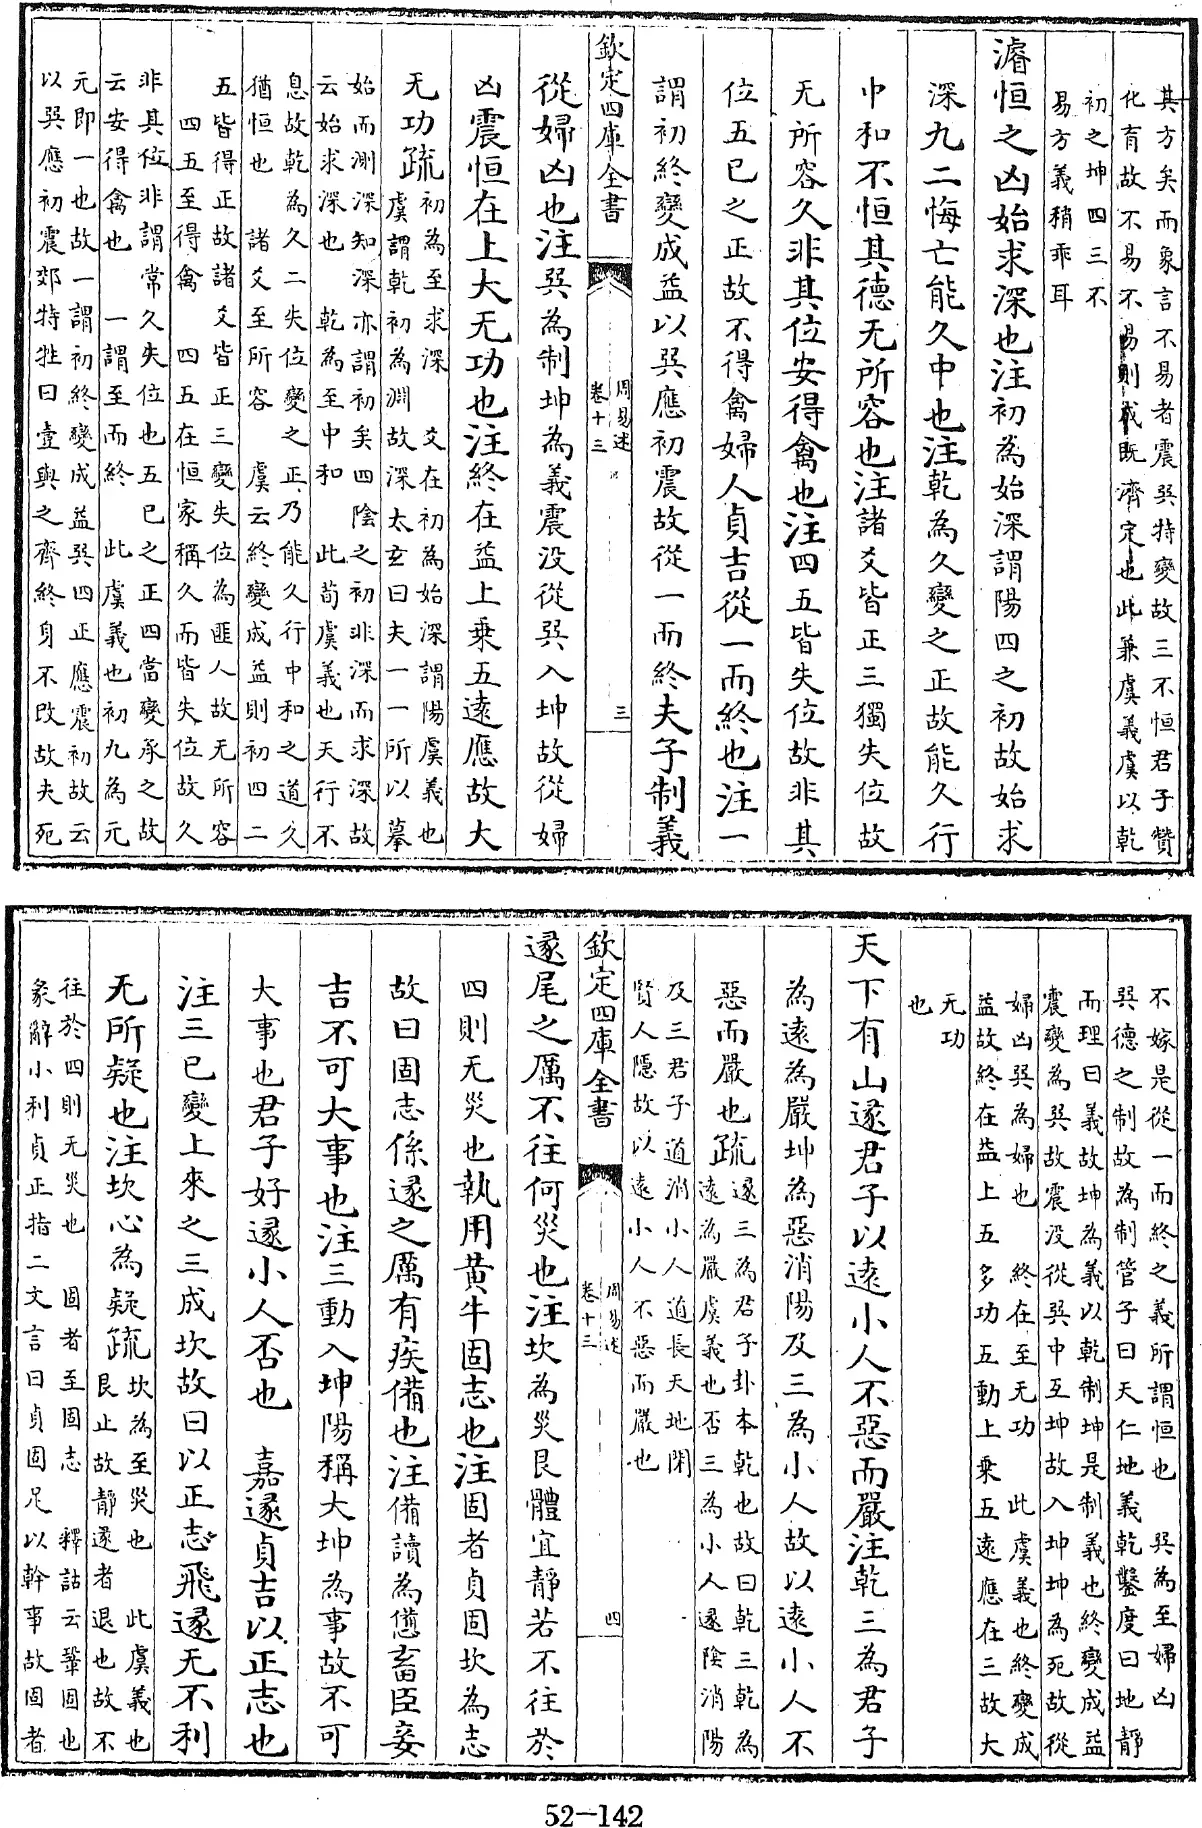 其方矣而象言不易者震巽特變故三不恒君子贊
化育故不易不易則或既濟定也此兼虞義虞以乾
初之坤四三不
易方義稍乖耳
濬恒之凶始求深也注初為始深謂陽四之初故始求
深九二悔亡能久中也注乾為久變之正故能久行
中和不恒其德无所容也注諸爻皆正三獨失位故
无所容久非其位安得禽也注四五皆失位故非其
位五已之正故不得禽婦人貞吉從一而終也注一
謂初終變成益以巽應初震故從一而終夫子制義
欽定四庫全書
周易述
卷十三
三
從婦凶也注巽為制坤為義震没從巽入坤故從婦
凶震恒在上大无功也注終在益上乗五遠應故大
无功疏
初為至求深 爻在初為始深謂陽虞義也
虞謂乾初為淵故深太玄曰夫一一所以摹
始而測深知深亦謂初矣四陰之初非深而求深故
云始求深也 乾為至中和 此荀虞義也天行不
息故乾為久二失位變之正乃能久行中和之道久
猶恒也 諸爻至所容 虞云終變成益則初四二
五皆得正故諸爻皆正三變失位為匪人故无所容
四五至得禽 四五在恒家稱久而皆失位故久
非其位非謂常久失位也五已之正四當變承之故
云安得禽也 一謂至而終 此虞義也初九為元
元即一也故一謂初終變成益巽四正應震初故云
以巽應初震郊特牲曰壹與之齊終身不改故夫死
不嫁是從一而終之義所謂恒也 巽為至婦凶
巽德之制故為制管子曰天仁地義乾鑿度曰地靜
而理曰義故坤為義以乾制坤是制義也終變成益
震變為巽故震没從巽中互坤故入坤坤為死故從
婦凶巽為婦也 終在至无功 此虞義也終變成
益故終在益上五多功五動上乗五遠應在三故大
无功
也
天下有山遂君子以遠小人不惡而嚴注乾三為君子
為遠為嚴坤為惡消陽及三為小人故以遠小人不
惡而嚴也疏
遯三為君子卦本乾也故曰乾三乾為
遠為嚴虞義也否三為小人遯陰消陽
及三君子道消小人道長天地閉
賢人隱故以遠小人不惡而嚴也
欽定四庫全書
周易述
卷十三
四
遂尾之厲不往何災也注坎為災艮體宜靜若不往於
四則无災也執用黄牛固志也注固者貞固坎為志
故曰固志係遂之厲有疾備也注備讀為憊畜臣妾
吉不可大事也注三動入坤陽稱大坤為事故不可
大事也君子好遂小人否也 嘉遂貞吉以正志也
注三已變上來之三成坎故曰以正志飛遂无不利
无所疑也注坎心為疑疏
坎為至災也 此虞義也
艮止故靜遂者退也故不
往於四則无災也 固者至固志 釋詁云鞏固也
彖辭小利貞正指二文言曰貞固足以幹事故固者
52-142